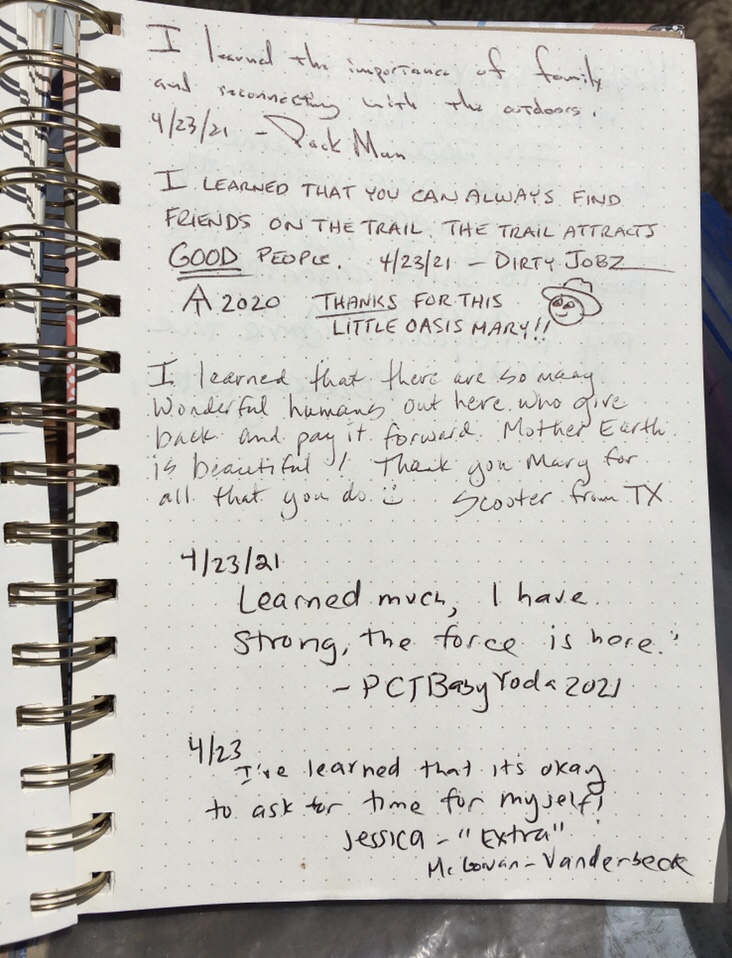 I learned the importance of family
and reconnecting with the outdoors.
4/23/21 - Pack Man
I LEARNED THAT YOU CAN ALWAYS FIND
FRIENDS ON THE TRAIL. THE TRAIL ATTRACTS
GOOD PEOPLE. 4/23/21 - DIRTY JOBZ
AT 2020 THANKS FOR THIS
LITTLE OASIS MARY!!
I learned that there are so many
wonderful humans out here who give
back and pay it forward. Mother Earth
is beautiful! Thank you Mary for
all that you do :) Scooter from TX
4/23/21
Learned much, I have.
Strong, the force is here."
- PCTBabyYoda 2021
4/23
I've learned that it's okay
to ask for time for myself!
Jessica - "Extra"
McGowan-Vanderbeck